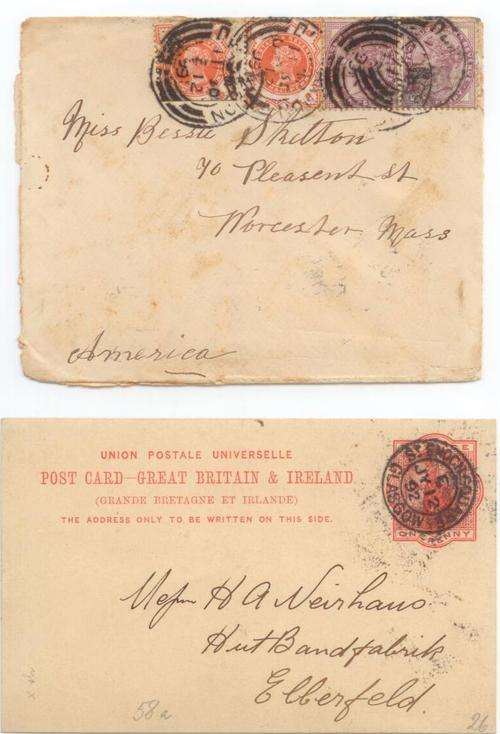 Miss Bessie Skelton
70 Pleasent st
Worcester, Mass
America
UNION POSTALE UNIVERSELLE
POST CARD—GREAT BRITAIN & IRELAND
(GRANDE BRETAGNE ET IRLANDE)
THE ADDRESS ONLY TO BE WRITTEN ON THIS SIDE.
GLASGOW
JY 12
92
ONE PENNY
H A Neirhaus
Hut Bandfabrik
Elberfeld.
58a
26